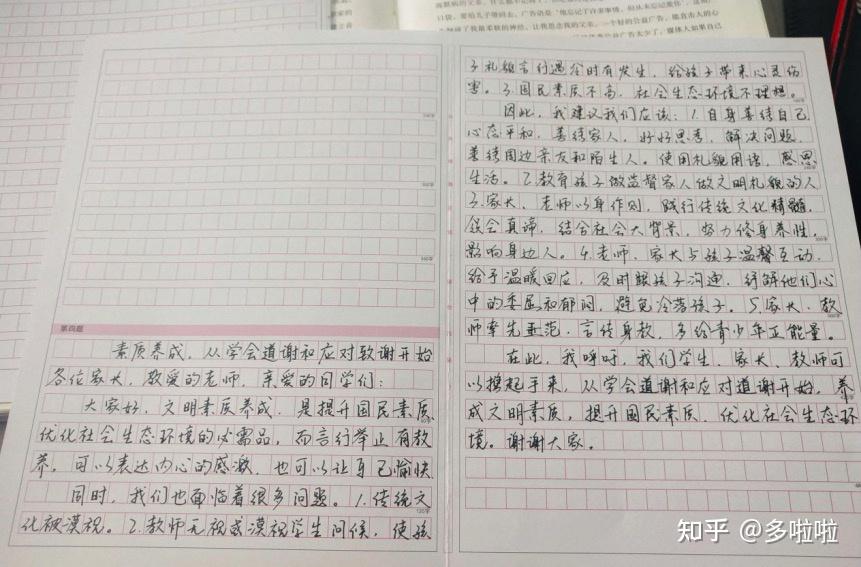 第四题
素质养成，从学会道谢和应对致谢开始
各位家长，敬爱的老师，亲爱的同学们：
大家好，文明素质养成，是提升国民素质
优化社会生态环境的必需品，而言行举止有教
养，可以表达内心的感激，也可以让自己愉快
同时，我们也面临着很多问题。1.传统文
化被漠视。2.教师无视或漠视学生问候，使孩
子礼貌言行遇冷时有发生，给孩子带来心灵伤
害。3.国民素质不高，社会生态环境不理想。
因此，我建议我们应该：1.自身善待自己
心态平和，善待家人，好好思考，解决问题，
善待周边亲友和陌生人。使用礼貌用语，感恩
生活。2.教育孩子做监督家人做文明礼貌的人
3.家长、老师以身作则，践行传统文化精髓，
领会真谛，结合社会大背景，努力修身养性，
影响身边人。4.老师、家长与孩子温馨互动，
给予温暖回应，及时跟孩子沟通，纾解他们心
中的委屈和郁闷，避免冷落孩子。5.家长、教
师率先垂范，言传身教，多给青少年正能量。
在此，我呼吁，我们学生、家长、教师可
以携起手来，从学会道谢和应对道谢开始，养
成文明素质，提升国民素质，优化社会生态环
境。谢谢大家。
知乎 @多啦啦